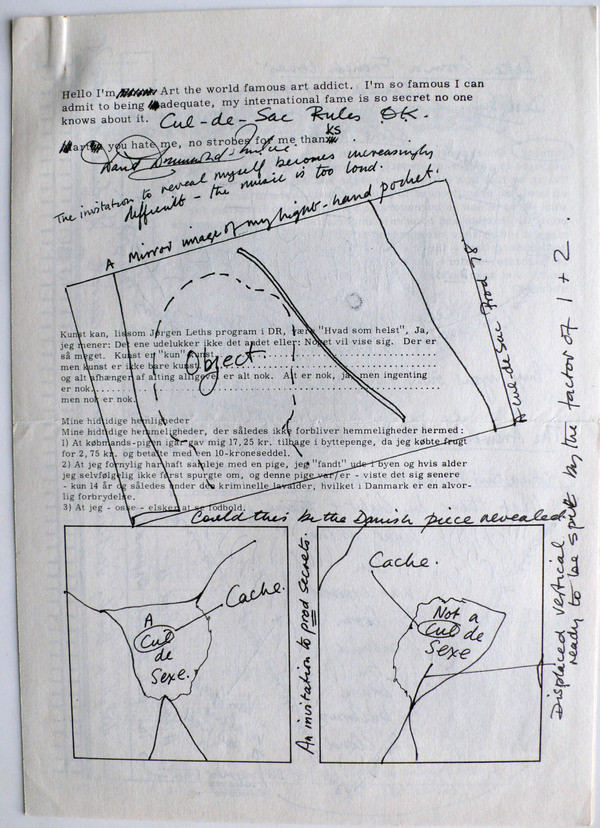 Hello I'm Art the world famous art addict. I'm so famous I can
admit to being adequate, my international fame is so secret no one
knows about it. Cul-de-Sac Rules OK.
you hate me, no strobes for me thanks
The invitation to reveal myself becomes increasingly
difficult - the music is too loud.
A Mirror image of my right-hand pocket.
A Cul-de-Sac Prod 78
Kunst kan, lissom Jørgen Leths program i DR, være "Hvad som helst", Ja,
jeg mener: Det ene udelukker ikke det andet eller: Noget vil vise sig. Der er
så meget. Kunst er "kun" kunst
men kunst er ikke bare kunst
Object
og alt afhænger af alting alligevel er alt nok. Alt er nok, ja, men ingenting
er nok
men nok er nok.
Mine hidtidige hemligheder
Mine hidtidige hemmeligheder, der således ikke forbliver hemmeligheder hermed:
1) At købmands-pigen igår gav mig 17,25 kr. tilbage i byttepenge, da jeg købte frugt
for 2,75 kr. og betalte med en 10-kroneseddel.
2) At jeg fornylig har haft samleje med en pige, jeg "fandt" ude i byen og hvis alder
jeg selvfølgelig ikke først spurgte om, og denne pige var/er - viste det sig senere
- kun 14 år og således under den kriminelle lavalder, hvilket i Danmark er en alvor-
lig forbrydelse.
3) At jeg - osse - elsker at se fodbold.
Could this be the Danish piece revealed
Displaced vertical
ready to be split by the factor of 1 + 2.
Cache.
A
Cul
de
Sexe.
An invitation to prod secrets.
Cache.
Not a
Cul de
Sexe